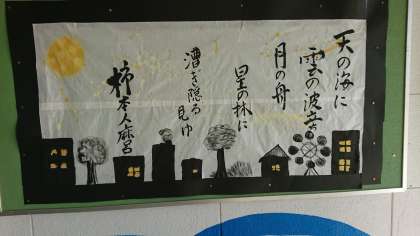 天の海に
雲の波立ち
月の舟
星の林に
漕ぎ隠る
見ゆ
柿本人麻呂